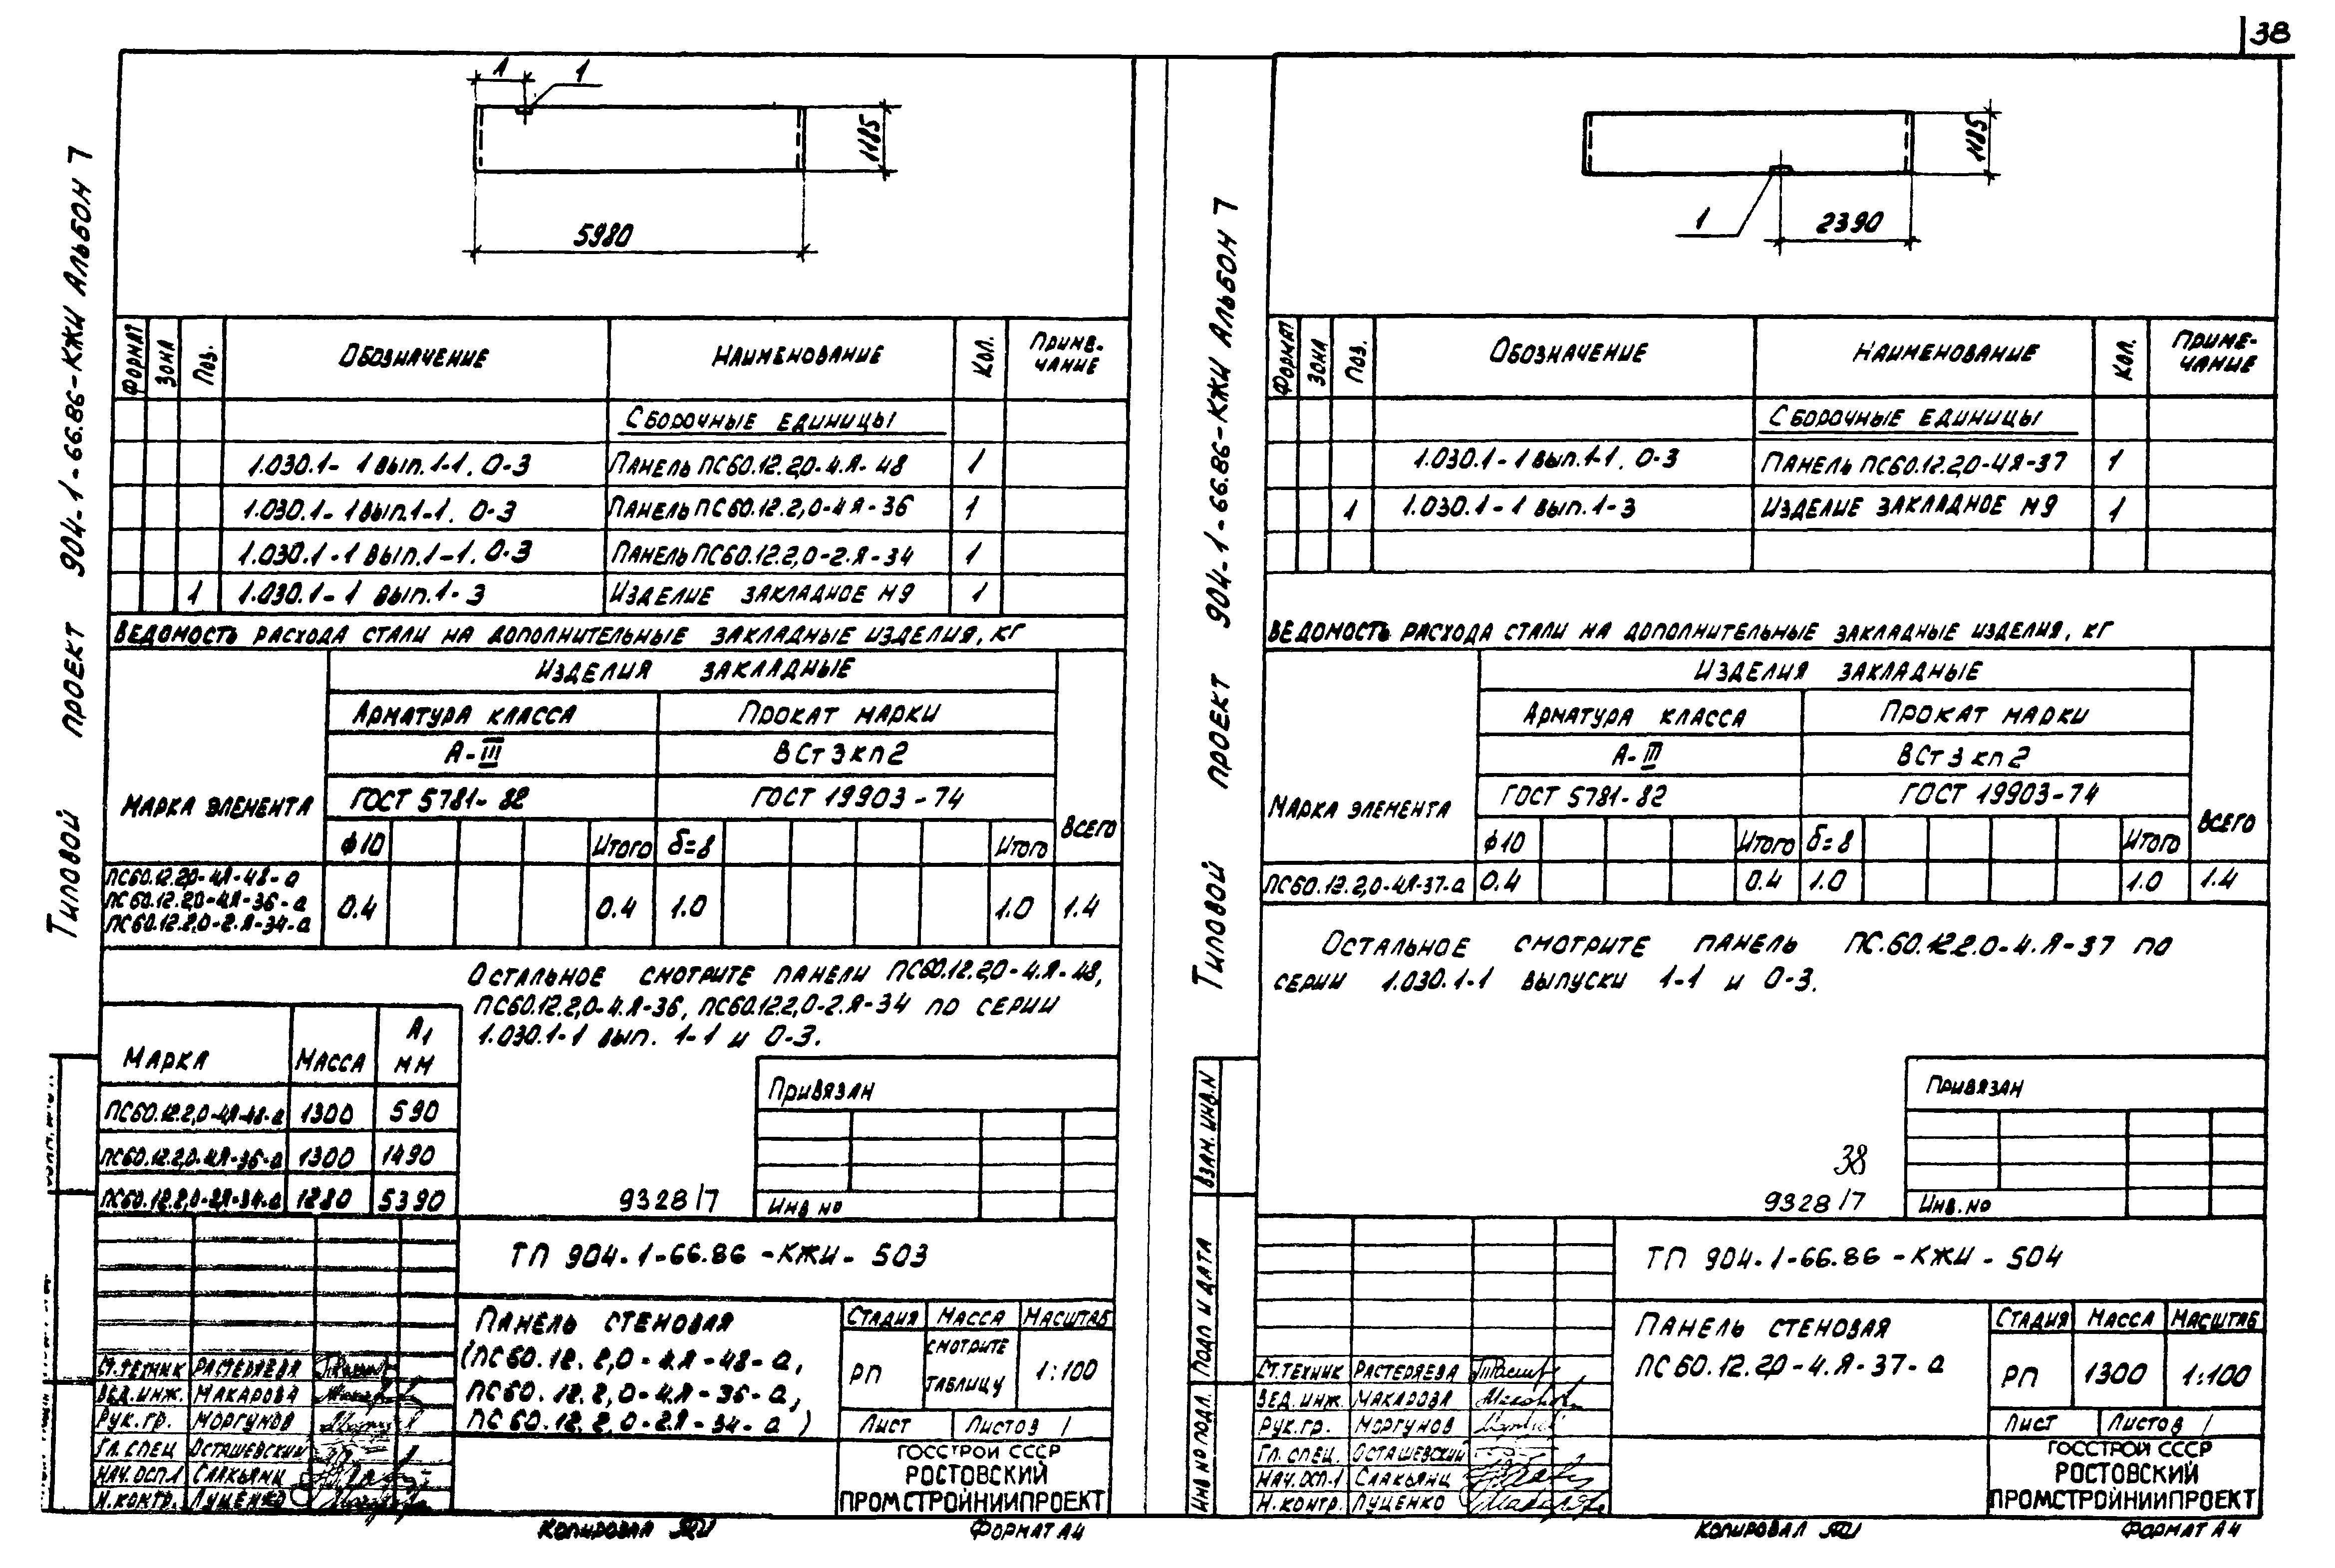 38
Типовой проект 904-1-66.86-КЖИ Альбом 7
1
1
1185
5980
Формат Зона Поз. Обозначение Наименование Кол. Приме-чание
Сборочные единицы
1.030.1-1 вып.1-1. 0-3 Панель ПС60.12.2,0-4.Я-48 1
1.030.1-1 вып.1-1. 0-3 Панель ПС60.12.2,0-4.Я-36 1
1.030.1-1 вып.1-1. 0-3 Панель ПС60.12.2,0-2.Я-34 1
1 1.030.1-1 вып.1-3 Изделие закладное М9 1
Ведомость расхода стали на дополнительные закладные изделия, кг
Марка элемента Изделия закладные Всего
Арматура класса Прокат марки
А-III ВСт3кп2
ГОСТ 5781-82 ГОСТ 19903-74
ϕ10 Итого δ=8 Итого
ПС60.12.2,0-4.Я-48-а
ПС60.12.2,0-4.Я-36-а
ПС60.12.2,0-2.Я-34-а
0.4 0.4 1.0 1.0 1.4
Остальное смотрите панели ПС60.12.2,0-4.Я-48,
ПС60.12.2,0-4.Я-36, ПС60.12.2,0-2.Я-34 по серии
1.030.1-1 вып. 1-1 и 0-3.
Марка Масса А1 мм
ПС60.12.2,0-4.Я-48-а 1300 590
ПС60.12.2,0-4.Я-36-а 1300 1490
ПС60.12.2,0-2.Я-34-а 1280 5390
Привязан
9328/7
Инв.№
ТП 904-1-66.86-КЖИ-503
Панель стеновая
(ПС60.12.2,0-4.Я-48-а,
ПС60.12.2,0-4.Я-36-а,
ПС60.12.2,0-2.Я-34-а)
Стадия Масса Масштаб
РП смотрите таблицу 1:100
Лист Листов 1
Ст.техник Растеряева
Вед.инж. Макарова
Рук.гр. Моргунов
Гл.спец Осташевский
Нач.осп-1 Слакьянц
Н.контр. Луценко
ГОССТРОЙ СССР
РОСТОВСКИЙ
ПРОМСТРОЙНИИПРОЕКТ
Копировал
Формат А4
Типовой проект 904-1-66.86-КЖИ Альбом 7
1185
1
2390
Формат Зона Поз. Обозначение Наименование Кол. Приме-чание
Сборочные единицы
1.030.1-1 вып.1-1. 0-3 Панель ПС60.12.2,0-4.Я-37 1
1 1.030.1-1 вып.1-3 Изделие закладное М9 1
Ведомость расхода стали на дополнительные закладные изделия, кг
Марка элемента Изделия закладные Всего
Арматура класса Прокат марки
А-III ВСт3кп2
ГОСТ 5781-82 ГОСТ 19903-74
ϕ10 Итого δ=8 Итого
ПС60.12.2,0-4.Я-37-а 0.4 0.4 1.0 1.0 1.4
Остальное смотрите панель ПС.60.12.2.0-4.Я-37 по
серии 1.030.1-1 выпуски 1-1 и 0-3.
Привязан
38
9328/7
Инв.№
Взам.инв.N
Подп и дата
Инв № подл.
ТП 904-1-66.86-КЖИ-504
Панель стеновая
ПС60.12.2,0-4.Я-37-а
Стадия Масса Масштаб
РП 1300 1:100
Лист Листов 1
Ст.техник Растеряева
Вед.инж. Макарова
Рук.гр. Моргунов
Гл.спец. Осташевский
Нач.осп-1 Слакьянц
Н.контр. Луценко
ГОССТРОЙ СССР
РОСТОВСКИЙ
ПРОМСТРОЙНИИПРОЕКТ
Копировал
Формат А4